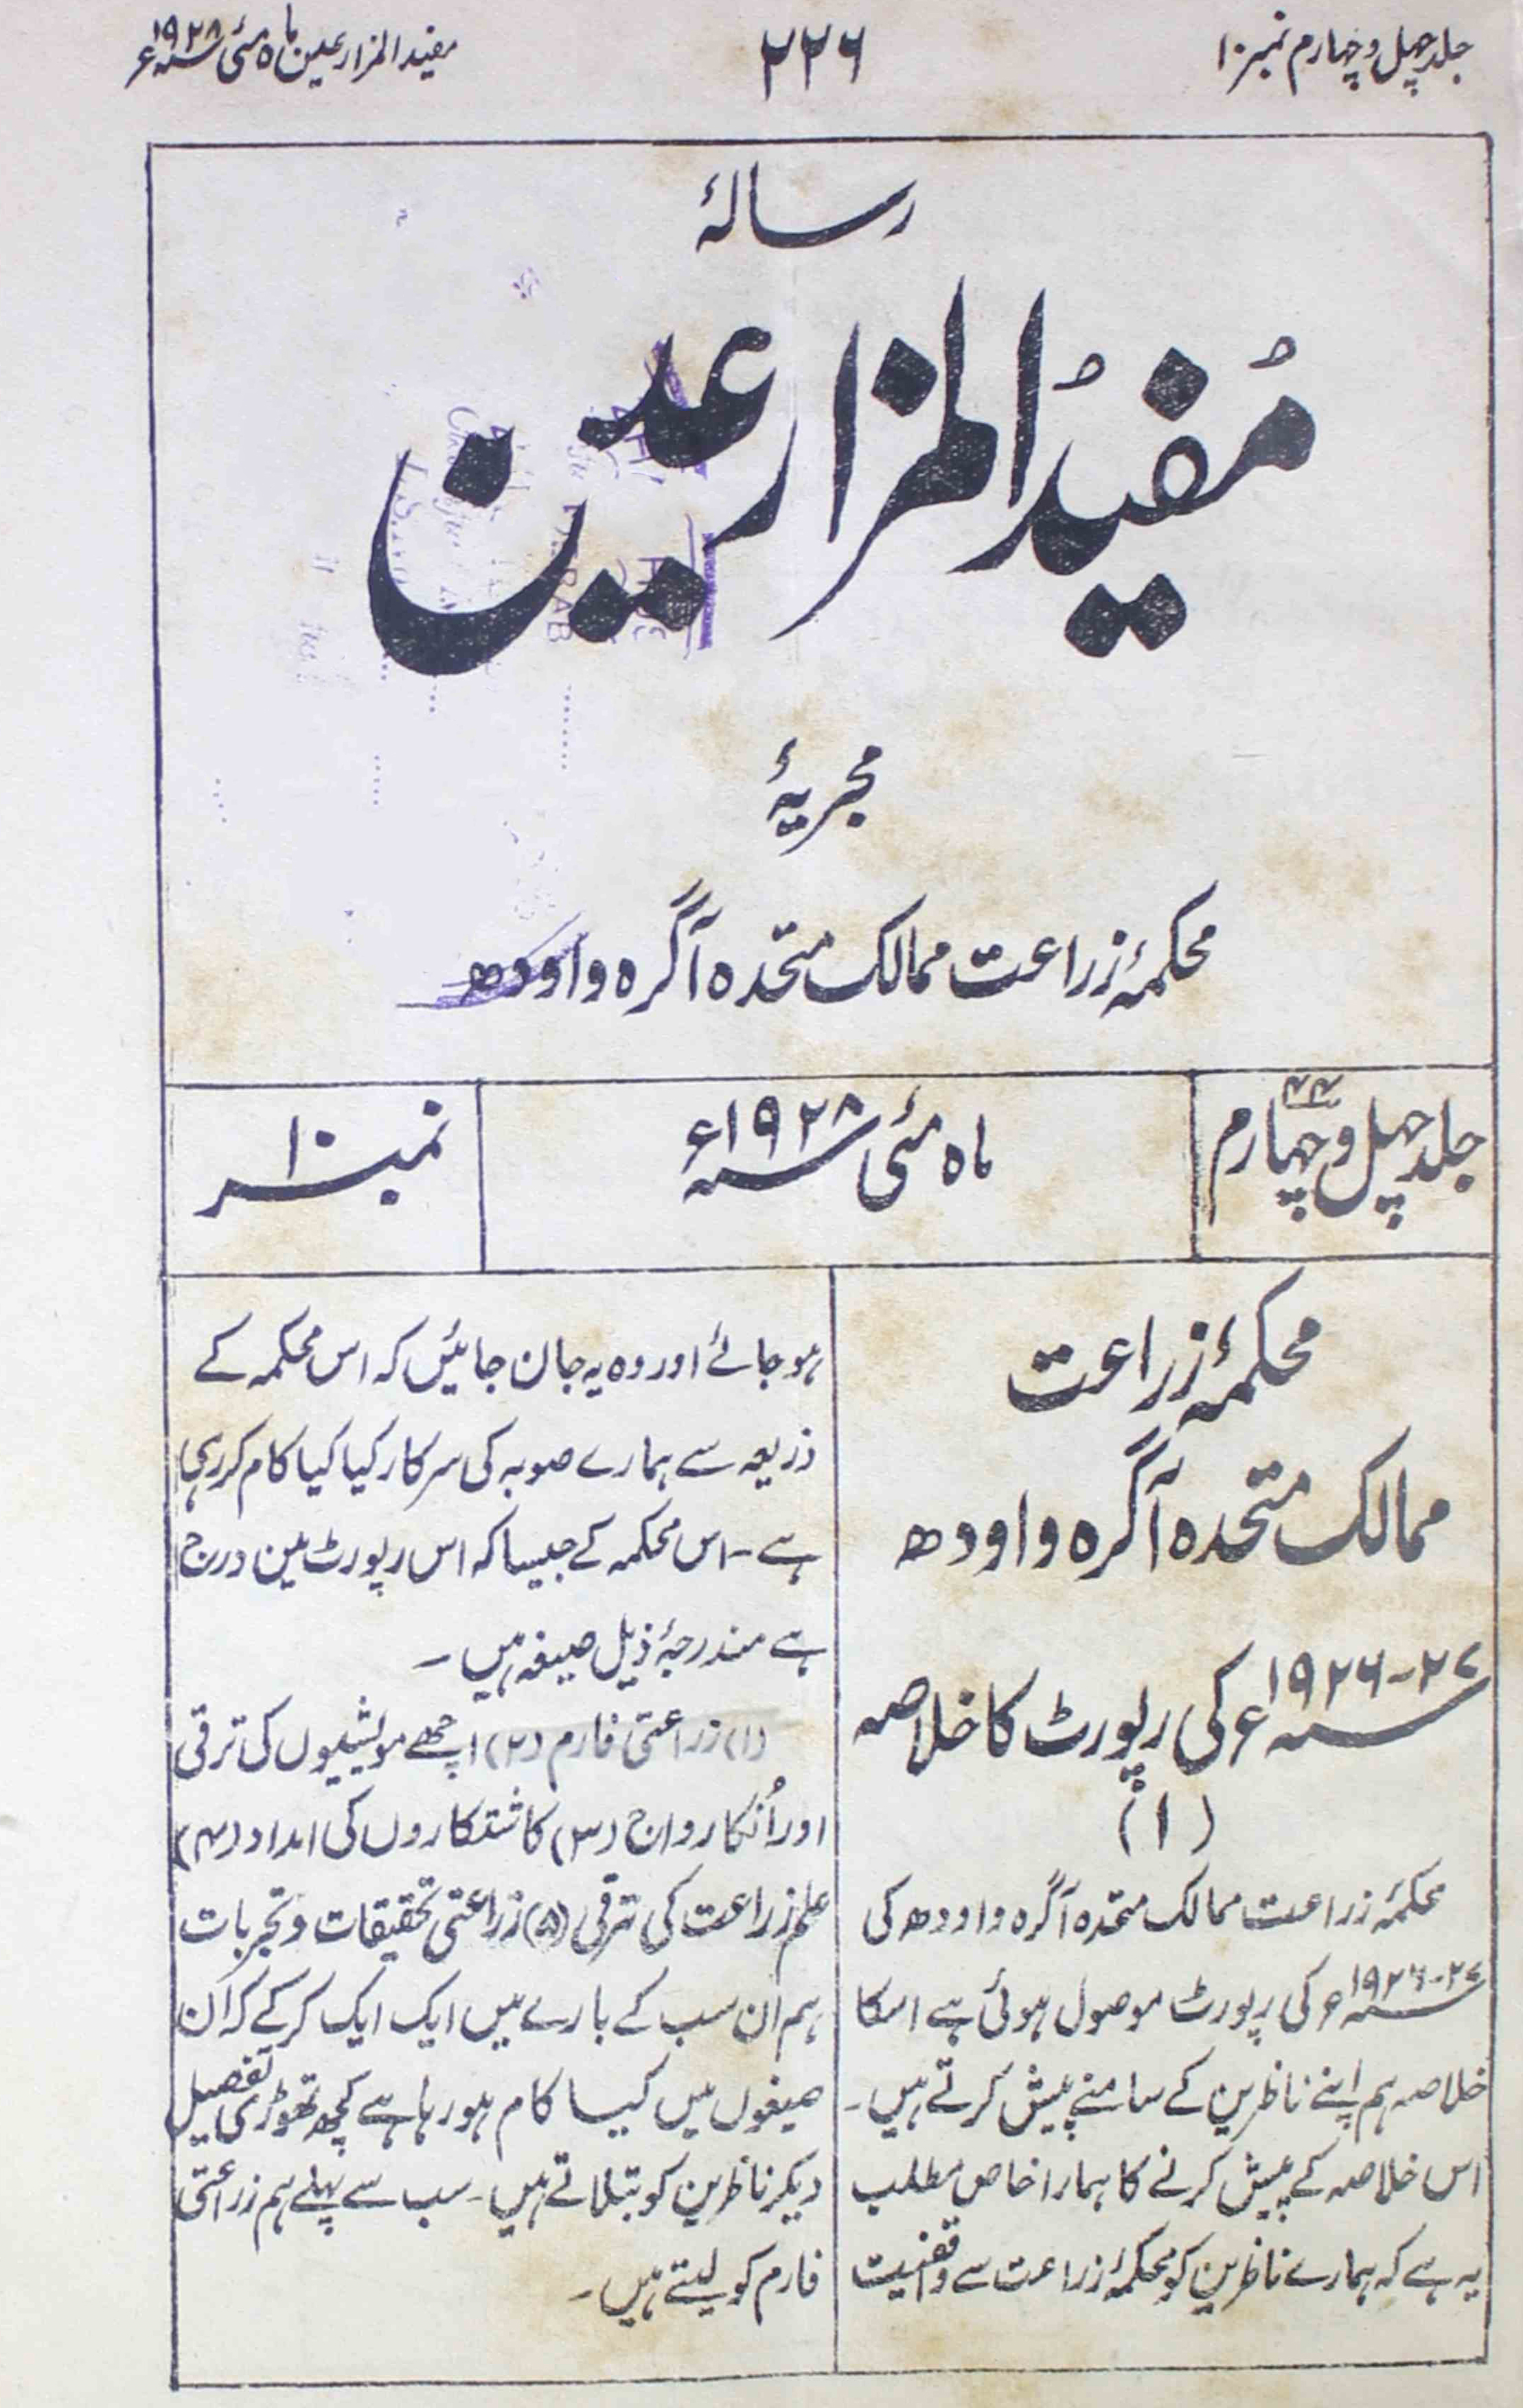 جلد چہل و چہارم نمبر ۱۰
۲۲۶
مفید المزارعین ماہ مئی سنہ ۱۹۲۸ء
رسالۂ
مُفیدُ المزارعین
مجریۂ
محکمۂ زراعت ممالک متحدہ آگرہ و اودھ
جلد چہل و چہارم ۴۴
ماہ مئی سنہ ۱۹۲۸ء
نمبر ۱۰
محکمۂ زراعت
ممالک متحدہ آگرہ و اودھ
سنہ ۲۷-۱۹۲۶ء کی رپورٹ کا خلاصہ
(۱)
محکمۂ زراعت ممالک متحدہ آگرہ و اودھ کی
سنہ ۲۷-۱۹۲۶ء کی رپورٹ موصول ہوئی ہے اسکا
خلاصہ ہم اپنے ناظرین کے سامنے پیش کرتے ہیں۔
اس خلاصہ کے پیش کرنے کا ہمارا خاص مطلب
یہ ہے کہ ہمارے ناظرین کو محکمۂ زراعت سے واقفیت
ہو جائے اور وہ یہ جان جائیں کہ اس محکمہ کے
ذریعہ سے ہمارے صوبہ کی سرکار کیا کیا کام کر رہی
ہے۔ اس محکمہ کے جیسا کہ اس رپورٹ مین درج
ہے مندرجۂ ذیل صیغہ ہیں۔
(۱) زراعتی فارم (۲) اچھے مویشیوں کی ترقی
اور اُنکا رواج (۳) کاشتکاروں کی امداد (۴)
علم زراعت کی ترقی (۵) زراعتی تحقیقات و تجربات
ہم ان سب کے بارے میں ایک ایک کر کے کہ ان
صیغوں میں کیسا کام ہو رہا ہے کچھ تھوڑی تفصیل
دیکر ناظرین کو بتلاتے ہیں۔ سب سے پہلے ہم زراعتی
فارم کو لیتے ہیں۔